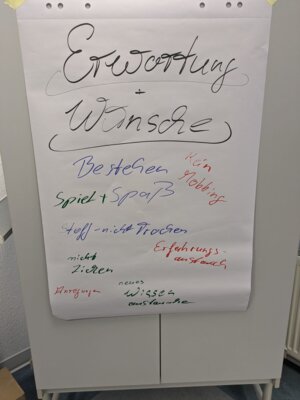 Erwartung
+
Wünsche
Bestehen
Kein
Mobbing
Spiel + Spaß
Stoff-nicht Trocken
Erfahrungs-
austausch
nicht
Zicken
Anregungen
neues
Wissen